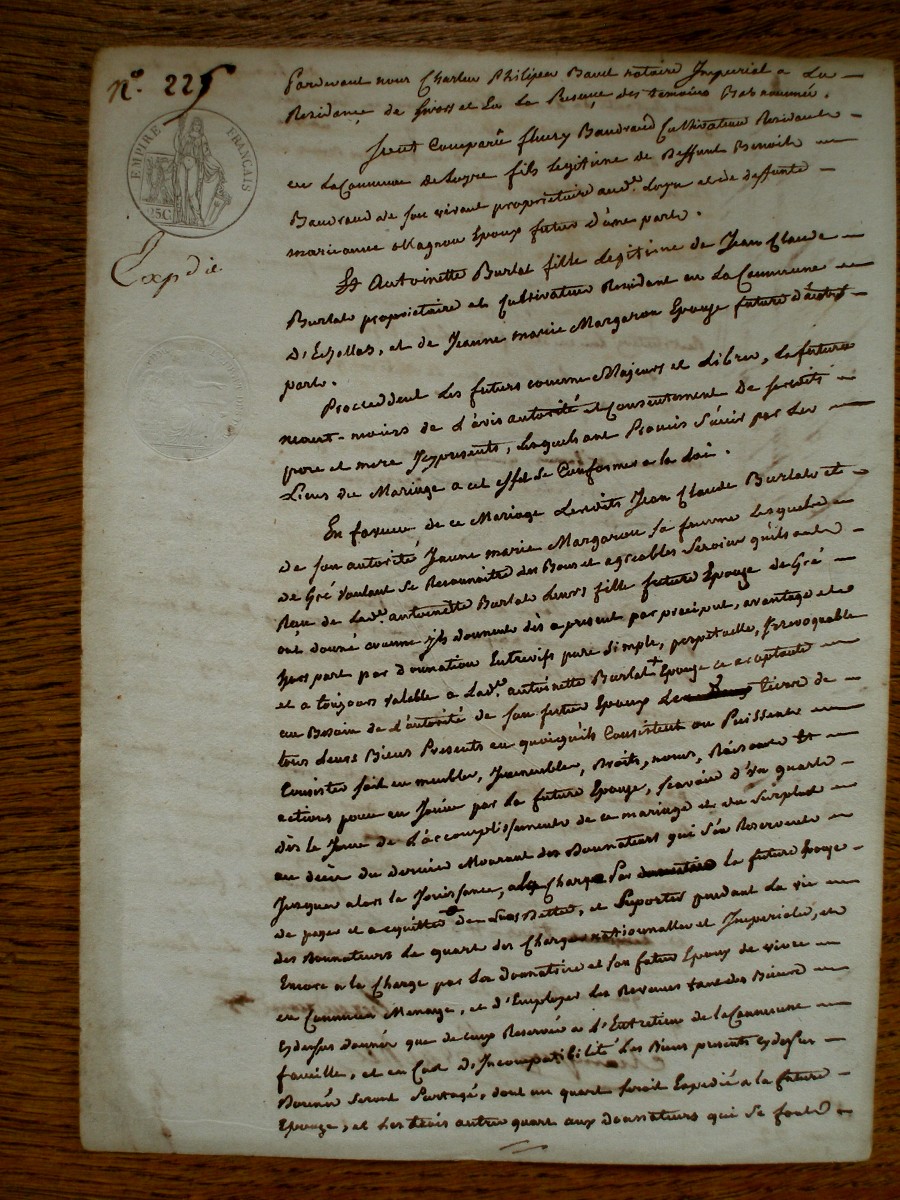 N.º 225
EMPIRE FRANÇAIS
25C
Expdié
Pardevant nous Charles Philipes notaire Imperial a La
Residence de Givors et En La Presence des temoins Bas nommés.
Sont Comparû fleury Baudrand Cultivateur Residant
en La Commune de Loyre fils Legitime de Deffunt Benoit
Baudrand de son vivant proprietaire aud.t Loyre et de deffunte
marianne Magnou Epoux futur d'une part.
Et Antoinette Burlat fille Legitime de Jean Claude
Burlat proprietaire et Cultivateur Residant en La Commune
D'Echallas, et de Jeanne marie Margaron Epouze future d'autre
part.
Proceddent Les futurs comme Majeurs et Libres, La future
neant-moins de L'avis autorité et Consentement De sesdits
pere et mere Icy presents, Lesquels ont Promis s'unir par Les
Liens du Mariage a cet effet se Conformer a la Loi.
En faveur de ce Mariage Lesdits Jean Claude Burlat et
de son autorité Jeanne marie Margaron sa femme Lesquels
de Gré Voulant se Reconnaitre des Bons et agreables Services qu'ils ont
Reçu de Lad.e antoinette Burlat Leurs fille future Epouze de Gré
ont donné comme ils donnent dès a present par preciput, avantage et
hors part par donnation Entrevifs pure simple, perpetuelle, Irrevoquable
et a toujours valable a Lad.e antoinette Burlat + Epouze ce acceptante
au Besoin de L'autorité de son futur Epoux Le tierce de
tous Leurs Biens Presents en quoiqu'ils Consistent ou Puissent
Consister soit en meubles, Immeubles, Droits, noms, Raisons Et
actions pour en Jouir par La future Epouze, scavoir d'un quart
dès le Jour de L'accomplissement de ce mariage et du surplus
au décès du dernier Mourant des Donnateurs qui s'en Reservent
Jusques alors la Jouissance, a La Charge Par La future Epouze
de payer et acquitter de Leurs Dettes, et suporter pendant La vie
des Donnateurs Le quart des Charges nationnalles et Imperiales, et
Encore a la Charge par La donnataire et son futur Epoux de vivre
en Commun Menage, et d'Employer Les Revenus tant des Biens
cydessus donnés que de ceux Reservés a L'Entretien de la Commune
famille, et en Cas D'Incompatibilité Les Biens presents cydessus
Donnés seront Partagé, dont un quart seroit Expedié a la future
Epouze, et Les trois autres quart aux donnateurs qui se font